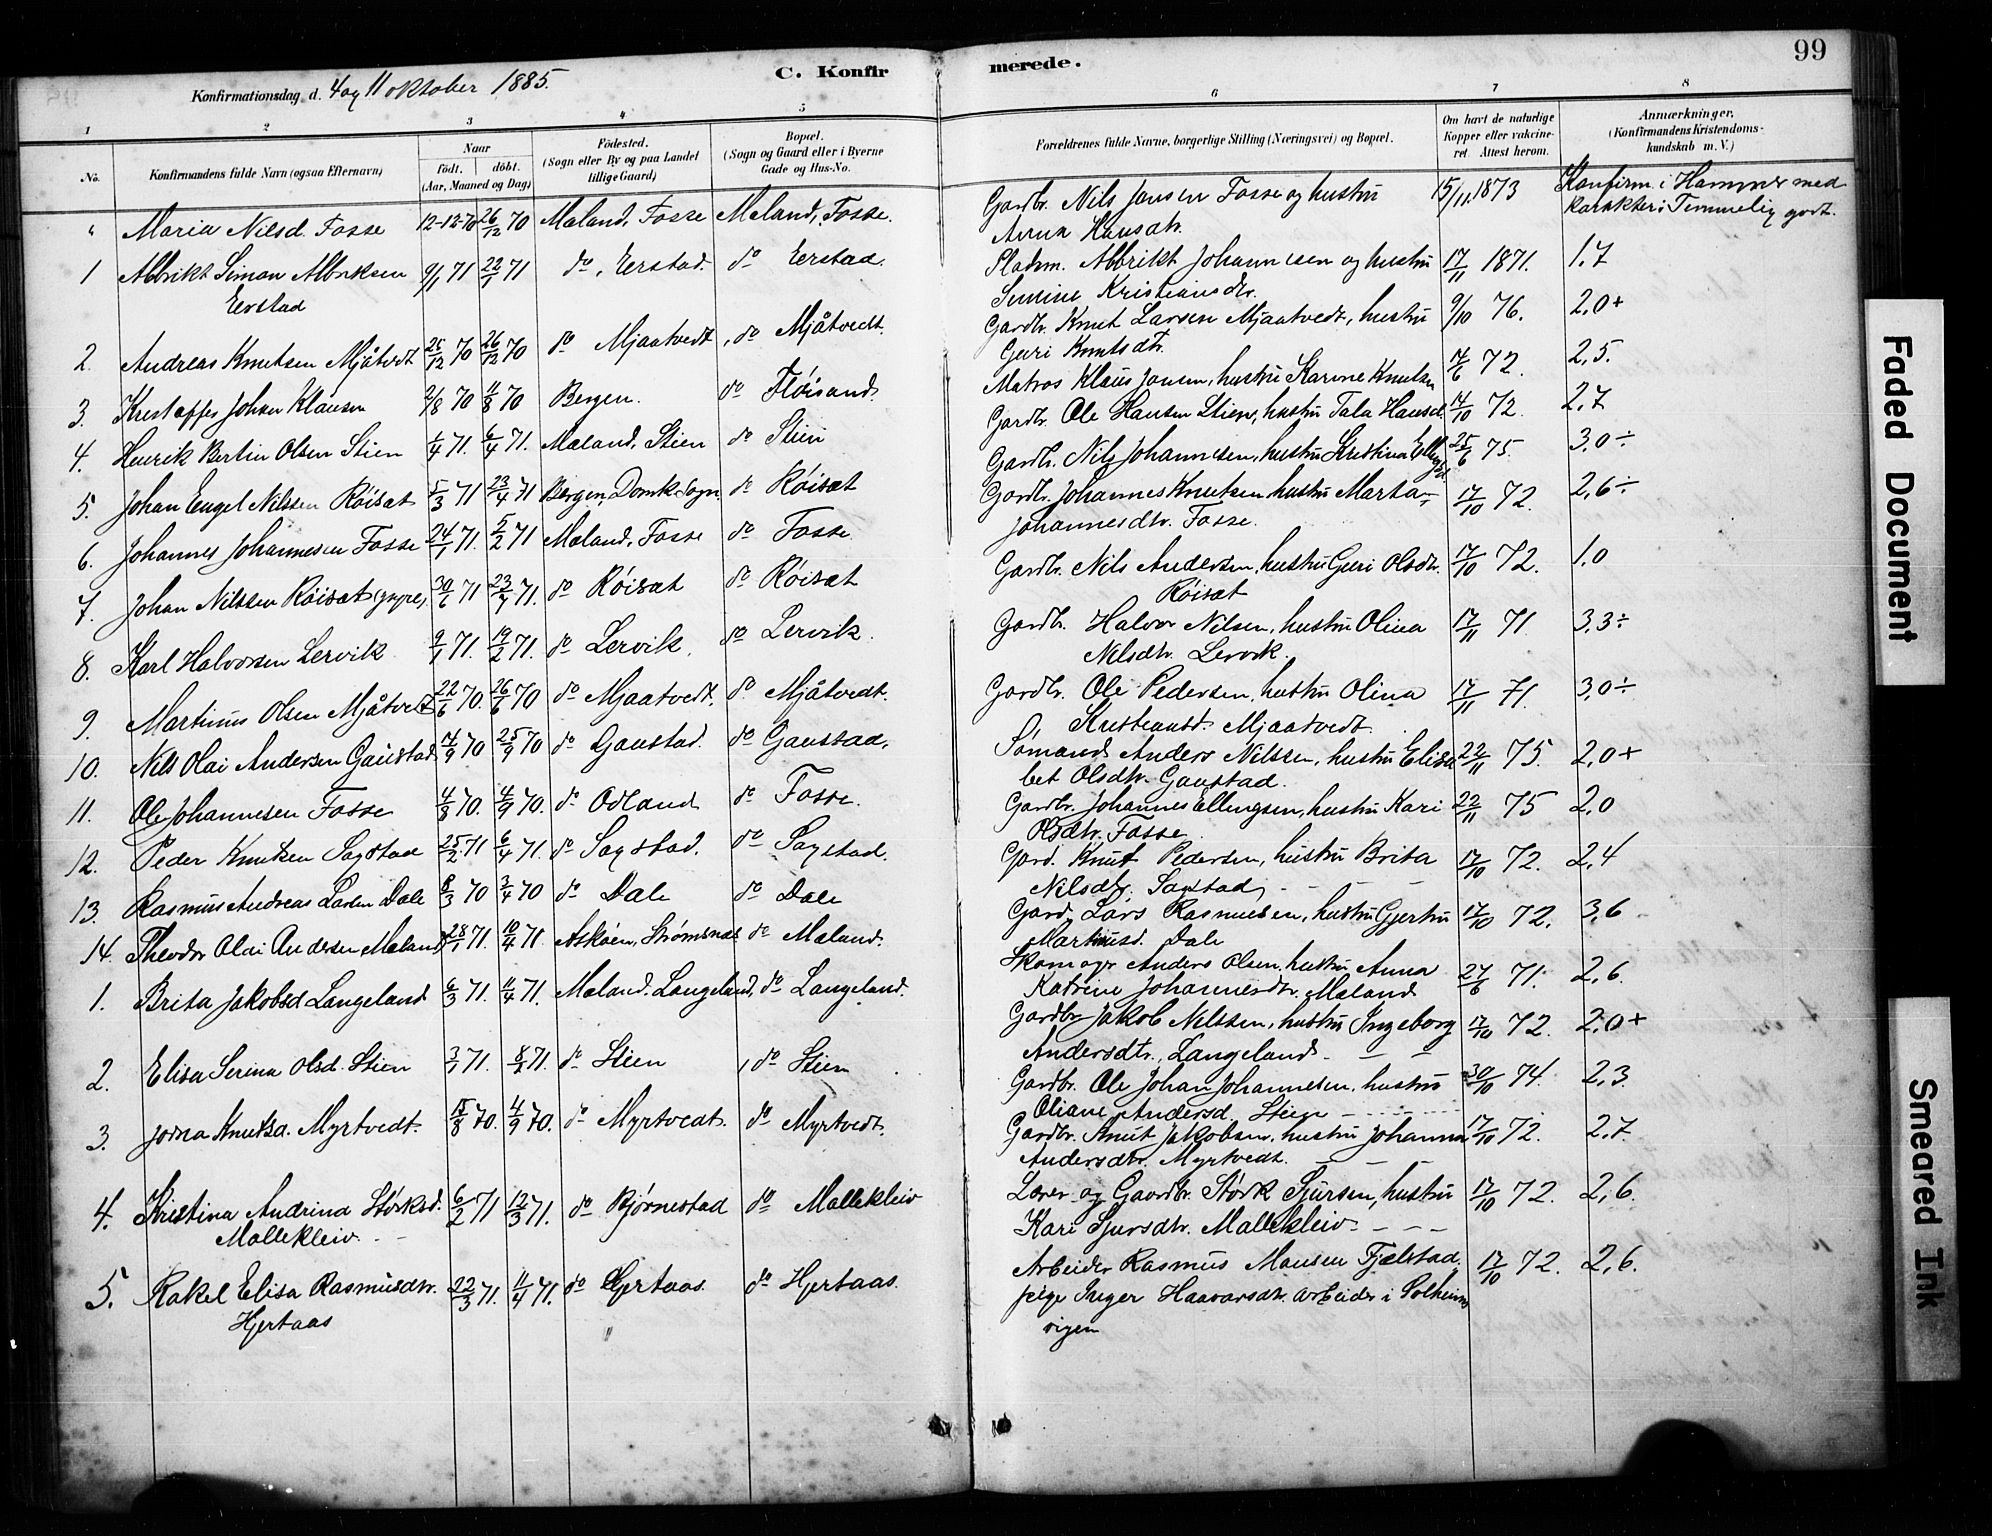 99
C. Konfirmerede.
Konfirmationsdag d. 4 og 11 oktober 1885.
1 2 3 4 5 6 7 8
No.
Konfirmandens fulde Navn (ogsaa Efternavn)
Naar
födt. döbt.
(Aar, Maaned og Dag)
Födested.
(Sogn eller By og paa Landet
tillige Gaard)
Bopæl.
(Sogn og Gaard eller i Byerne
Gade og Hus-No.
Forældrenes fulde Navne, borgerlige Stilling (Næringsvei) og Bopæl.
Om havt de naturlige
Kopper eller vakcine-
ret. Attest herom.
Anmærkninger.
(Konfirmandens Kristendoms-
kundskab m. V.)
" Maria Nilsd. Fosse 12-12-70 26/12 70 Mæland, Fosse Mæland, Fosse. Gardbr. Nils Jansen Fosse og hustru 15/11 1873 Konfirm. i Hammer med
Anna Hansdtr. karakter: Temmelig godt.
1 Albrikt Simon Albriksen 9/1 71 22/1 71 do, Eerstad. do Eerstad. Pladsm. Albrikt Johannesen og hustru 17/11 1871. 1.7
Eerstad Semine Kristiansdtr.
2. Andreas Knutsen Mjåtvedt 25/12 70 26/12 70 do Mjaatvedt, do Mjåtvedt. Gardbr. Knut Larsen Mjaatvedt, hustru 9/10 76. 2,0+
Guri Knutsdtr.
3. Kristoffer Johan Klausen 2/8 70 11/8 70 Bergen. do Fløisand. Matros Klaus Jansen, hustru Karine Knutsen 17/6 72. 2,5.
4. Henrik Bertin Olsen Stien 1/4 71. 6/4 71. Mæland, Stien do Stien Gardbr. Ole Hansen Stien, hustru Tala Hansd. 14/10 72. 2,7
5. Johan Engel Nilssen Røisæt 5/3 71 23/4 71 Bergen, Domk. Sogn. do Røisæt Gardbr. Nils Johannesen, hustru Kristina Ellingsd. 25/6 75. 3,0÷
6. Johannes Johannesen Fosse 24/1 71. 5/2 71 Mæland, Fosse do Fosse. Gardbr. Johannes Knutsen hustru Marta 17/10 72. 2,6÷
Johannesdtr. Fosse.
7. Johan Nilssen Røisæt (yngre) 30/6 71 23/7 71. do Røisæt do Røisæt Gardbr. Nils Andersen, hustru Guri Olsdtr. 17/10 72. 1.0
Røisæt
8. Karl Halvorsen Lervik 9/1 71. 19/2 71. do Lervik. do Lervik. Gardbr. Halvor Nilsen, hustru Olina 17/11 71. 3,3÷
Nilsdtr. Lervik.
9. Martinus Olsen Mjåtvedt 22/6 70. 26/6 70 do Mjaatvedt. do Mjåtvedt. Gardbr. Ole Pedersen, hustru Olina 17/11 71. 3,0÷
Kristiansd. Mjaatvedt.
10. Nils Olai Andersen Gaustad 14/9 70 25/9 70 do Gaustad. do Gaustad, Sømand Anders Nilssen, hustru Elisa 22/11 75. 2,0+
bet Olsdtr. Gaustad.
11. Ole Johannesen Fosse 4/8 70. 4/9 70. do Odland do Fosse. Gardbr. Johannes Ellingsen, hustru Kari 22/11 75 2,0
Olsdtr. Fosse
12. Peder Knutsen Sagstad 25/2 71 6/4 71. do Sagstad. do Sagstad. Gard. Knut Pedersen, hustru Brita 17/10 72. 2,4
Nilsdtr. Sagstad, - - -
13. Rasmus Andreas Larsen Dale 8/3 70 3/4 70 do Dale do Dale Gard. Lars Rasmusen, hustru Gjertru 17/10 72. 3,6
Martinusd. Dale
14. Theodor Olai Andersen Mæland 28/1 71. 10/4 71. Askøen, Strømsnes do Mæland. Skomager Anders Olsen, hustru Anna 27/6 71. 2,6
Katrine Johannesdtr. Mæland
1. Brita Jakobsd Langeland 6/3 71. 11/4 71. Mæland. Langeland, do Langeland. Gardbr. Jakob Nilssen, hustru Ingeborg 17/10 72. 2.0+
Andersdtr., Langeland - - -
2. Elisa Serina Olsd. Stien 3/1 71. 8/1 71. do Stien , do Stien Gardbr. Ole Johan Johannesen, hustru 30/10 74. 2,3.
Oliane Andersd. Stien
3. Jorna Knutsd. Myrtvedt. 15/8 70. 4/9 70. do Myrtvedt. do Myrtvedt. Gardbr. Knut Jakobsen, hustru Johanna 17/10 72. 2,7.
Andersdtr. Myrtvedt. - -
4. Kristina Andrina Størksd. 6/2 71 12/3 71. do Bjørnestad do Mallekleiv Lærer og Gaardbr. Størk Sjursen, hustru 17/10 72. 2,6.
Mallekleiv. Kari Sjursdtr. Mallekleiv - - -
5. Rakel Elisa Rasmusdtr. 22/3 71. 11/4 71. do Hjertaas. do Hjertaas. Arbeider Rasmus Monsen Fjælstad, 17/10 72. 2,6.
Hjertaas pige Inger Haavarsdtr. arbeider i Solheims
vigen
Faded Document
Smeared Ink